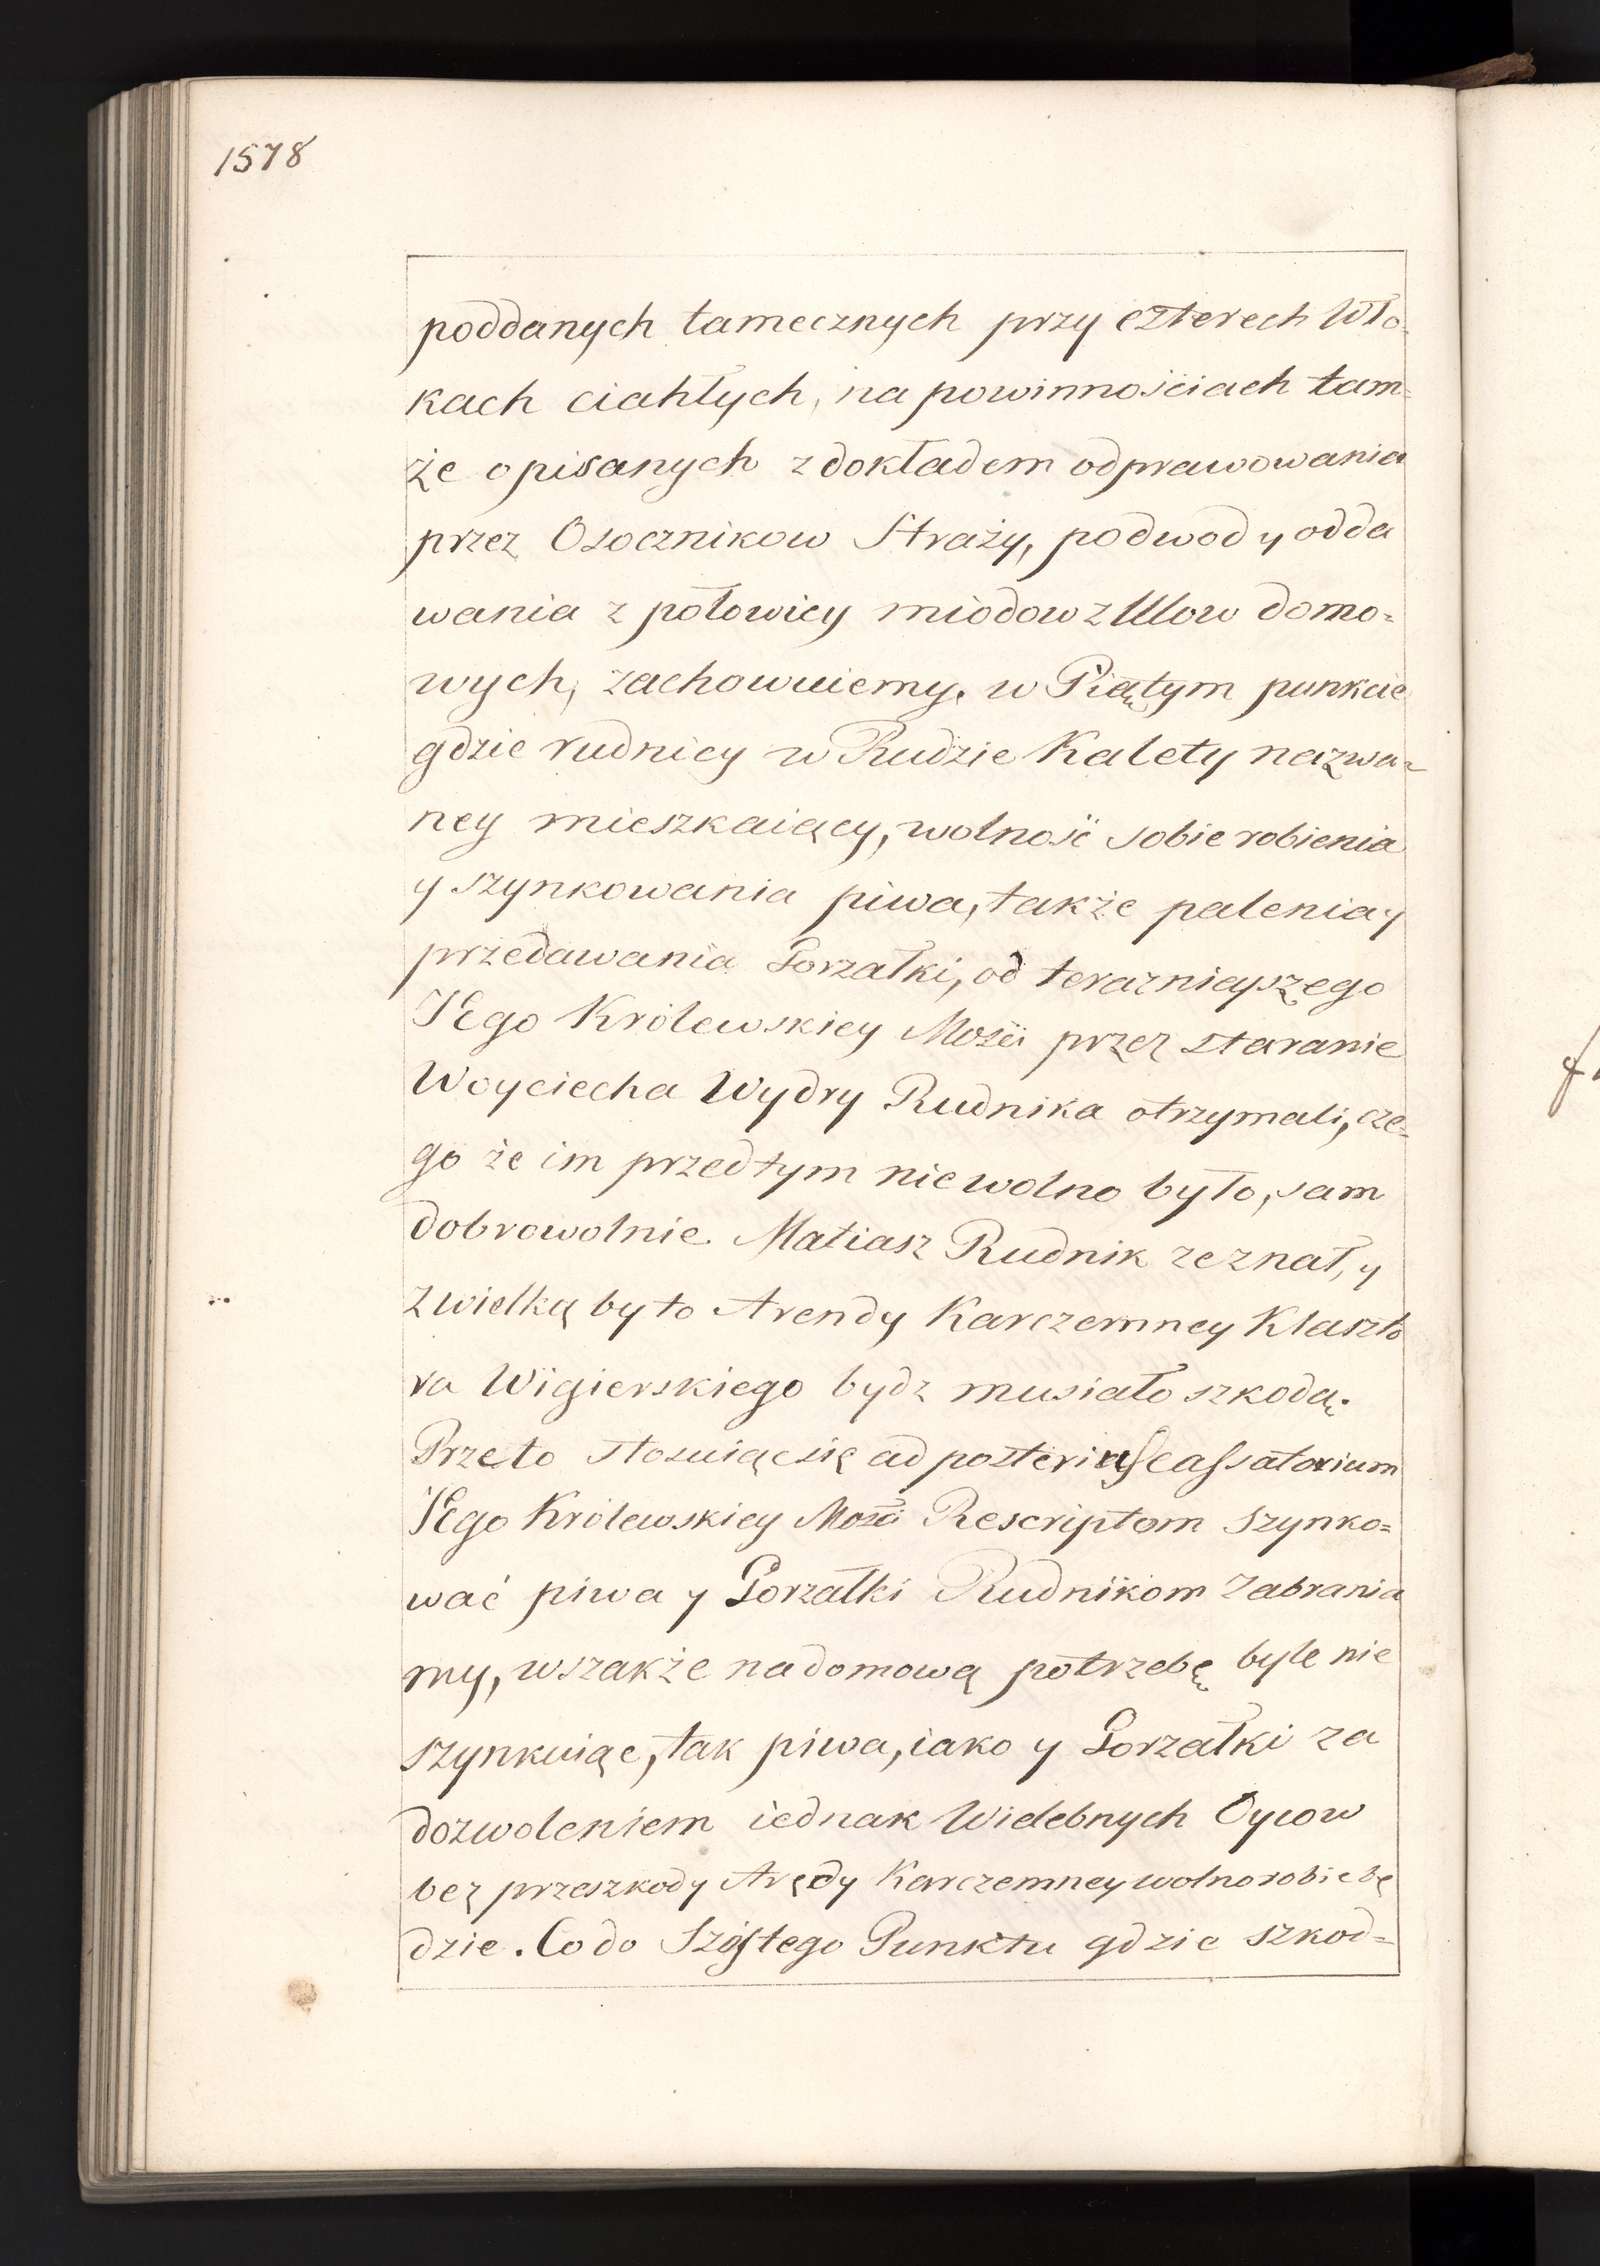 1578
poddanych tamecznych przy czterech Wło-
kach ciahłych, na powinnościach tam-
że opisanych z dokładem odprawowania
przez Osocznikow Straży, podwod y odda
wania z połowicy miodow z Ulow domo-
wych, zachowuiemy. w Piątym punkcie
gdzie rudnicy w Rudzie Kalety nazwa-
ney mieszkaiący, wolność sobie robienia
y szynkowania piwa, także palenia y
przedawania Gorzałki, od terazniayszego
JEgo Królewskiey Mości przez staranie
Woyciecha Wydry Rudnika otrzymali, cze-
go że im przedtym nie wolno było, sam
dobrowolnie Matiasz Rudnik zeznał, y
z wielką by to Arendy Karczemney Klaszto
ra Wigierskiego bydz musiało szkodą.
Przeto stosuiąc się ad posterius cassatorium
JEgo Królewskiey Mości Rescriptom szynko-
wać piwa y Gorzałki Rudnikom zabrania
my, wszakże na domową potrzebę byle nie
szynkuiąc, tak piwa, iako y Gorzałki za
dozwoleniem iednak Wielebnych Oycow
bez przeszkody Arędy Karczemney wolno robić bę
dzie. Co do Szóstego Punktu gdzie szkod-